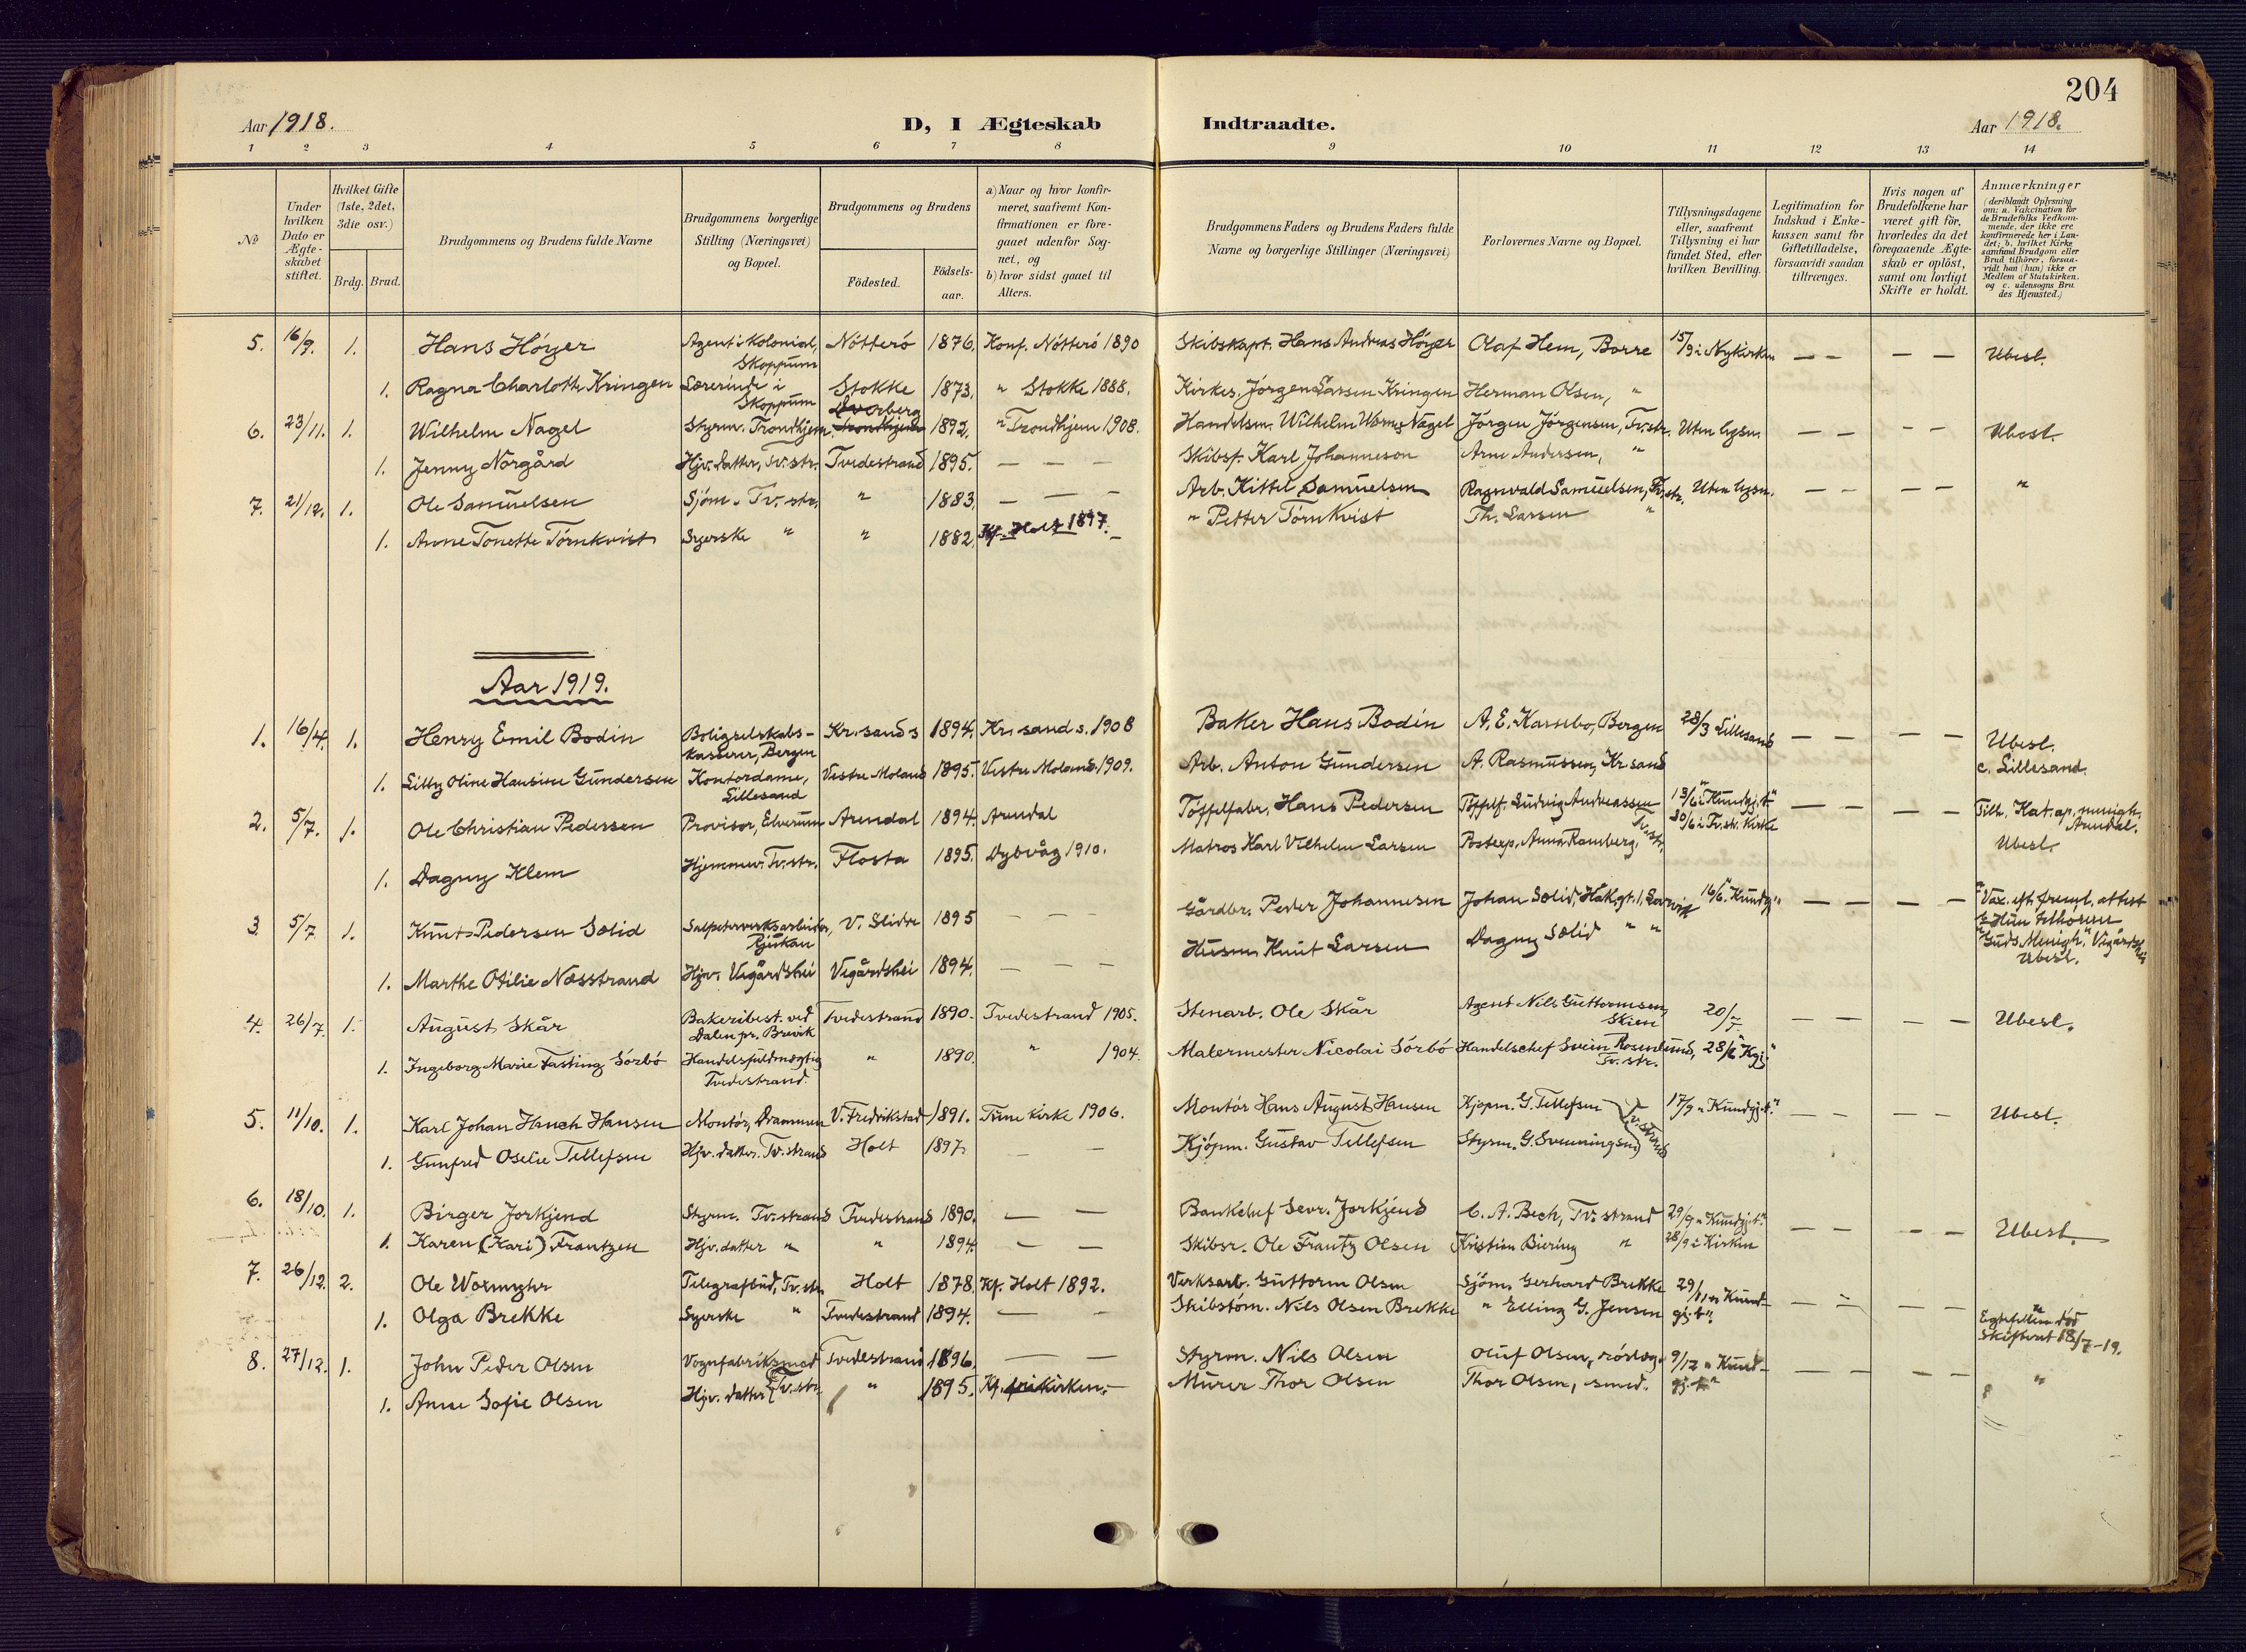 204
Aar 1918.
D, I Ægteskab Indtraadte.
Aar 1918.
1 2 3 4 5 6 7 8 9 10 11 12 13 14
No
Under hvilken Dato er Ægteskabet stiftet.
Hvilket Gifte (1ste, 2det, 3die osv.)
Brdg. Brud.
Brudgommens og Brudens fulde Navne
Brudgommens borgerlige Stilling (Næringsvei) og Bopæl.
Brudgommens og Brudens
Födested.
Födselsaar.
a) Naar og hvor konfirmeret, saafremt Konfirmationen er foregaaet udenfor Sognet, og
b) hvor sidst gaaet til Alters.
Brudgommens Faders og Brudens Faders fulde Navne og borgerlige Stillinger (Næringsvei)
Forlovernes Navne og Bopæl.
Tillysningsdagene eller, saafremt Tillysning ei har fundet Sted, efter hvilken Bevilling.
Legitimation for Indskud i Enkekassen samt for Giftetilladelse, forsaavidt saadan tiltrænges.
Hvis nogen af Brudefolkene har været gift för, hvorledes da det foregaaende Ægteskab er oplöst, samt om lovligt Skifte er holdt.
Anmærkninger
(deriblandt Oplysning om: a. Vakcination for de Brudefolks Vedkommende, der ikke ere konfirmerede her i Landet; b. hvilket Kirkesamfund Brudgom eller Brud tilhörer, forsaavidt han (hun) ikke er Medlem af Statskirken. og c. udensogns Brudes Hjemsted.)
5. 16/9. 1. Hans Höyer Agent i Kolonial, Skoppum Nötterö 1876. Konf. Nötterö 1890 Skibskapt. Hans Andreas Höyer Olaf Hem, Borre 15/9 i Nykirken — — — — Ubesl.
1. Ragna Charlotte Kringen Lærerinde i Skoppum Stokke 1873. " Stokke 1888. Kirkes. Jörgen Larsen Kringen Herman Olsen, "
6. 23/11. 1. Wilhelm Nagel Styrm. Trondhjem. Trondhjem 1892. " Trondhjem 1908. Handelsm. Wilhelm Worms Nagel Jörgen Jörgensen, Tv.str. Uten lysn. — — — — Ubesl.
1. Jenny Norgård Hjv. datter, Tv.str. Tvedestrand 1895. — — — Skibsf. Karl Johanneson Arne Andersen, "
7. 21/12. 1. Ole Samuelsen Sjöm. Tv.str. " 1883. — — — Arb. Kittel Samuelsen Ragnvald Samuelsen, Tv.str. Uten lysn. — — — — "
1. Anne Tonette Törnkvist Syerske " " 1882. Kf. Holt 1897. " Petter Törnkvist Th. Larsen "
Aar 1919.
1. 16/4. 1. Henry Emil Bodin Boligselskabskasserer, Bergen Kr.sand s 1894. Kr.sand s. 1908 Baker Hans Bodin A. E. Karsebo, Bergen 28/3 Lillesand — — — — Ubesl.
1. Lilly Oline Hansine Gundersen Kontordame, Lillesand Vestre Moland 1895. Vestre Moland. 1909. Arb. Anton Gundersen A. Rasmussen, Kr sand c. Lillesand.
2. 5/7. 1. Ole Christian Pedersen Provisor, Elverum Arendal 1894. Arendal Töffelfabr. Hans Pedersen Töffelf. Ludvig Andreassen 13/6 i "Kundgj.t." — — — — Tilh. Kat. ap. menigh. Arendal.
1. Dagny Klem Hjemmev. Tv.str. Flosta 1895. Dybvåg 1910. Matros Karl Vilhelm Larsen Postexp. Anna Ramberg, Tv.str. 30/6 i Tv.str. Kirke Ubesl.
3. 5/7 1. Knut Pedersen Solid Salpeterverksarbeider, Rjukan V. Slidre 1895 — — — Gårdbr. Peder Johannesen Johan Solid, Håk.gt. 1, Larvik 16/6. Kundgj." — — — — Vax. eft. freml. attest
1. Marthe Otilie Næsstrand Hjv. Vegårdshei Vegårdshei 1894. — — — Husm. Knut Larsen Dagny Solid " " Hun tilhörer "Guds Menigh." Vegårdshei Ubesl.
4. 26/7. 1. August Skår Bakeribest. ved Dalen pr. Brevik Tvedestrand 1890. Tvedestrand 1905. Stenarb. Ole Skår Agent Nils Guttormsen, Skien 20/7. — — — — Ubesl.
1. Ingeborg Marie Fasting Sörbö Handelsfuldmægtig Tvedestrand. " 1890. " 1904. Malermester Nicolai Sörbö Handelschef Svein Rosenlund, Tv.str. 28/6 "Kgj."
5. 11/10. 1. Karl Johan Hauch Hansen Montör, Drammen V. Fredrikstad 1891. Tune kirke 1906. Montör Hans August Hansen Kjöpm. G. Tellefsen Tv.strand 17/9 "Kundgj.t." — — — — Ubesl.
1. Gunfred Oselie Tellefsen Hjv. datter. Tv.strand Holt 1897. — — Kjöpm. Gustav Tellefsen Styrm. G. Svenningsen
6. 18/10. 1. Birger Jorkjend Styrm. Tv.strand Tvedestrand 1890. — — Bankchef Sevr. Jorkjend C. A. Bech, Tv.strand 29/9 "Kundgj.t." — — — — Ubesl.
1. Karen (Kari) Frantzen Hjv. datter " " 1894. — — Skibsr. Ole Frantz Olsen Kristian Biering " 28/9 i Kirken
7. 26/12. 2. Ole Woxmyhr Telegrafbud, Tv.str. Holt 1878. Kf. Holt 1892. Verksarb. Guttorm Olsen Sjöm. Gerhard Brekke 29/11 "Kundgj.t". — — — — Egtefellen död
1. Olga Brekke Syerske " Tvedestrand 1894. — — Skibstöm. Nils Olsen Brekke " Elling G. Jensen Skiftent 18/7-19.
8. 27/12. 1. John Peder Olsen Vognfabriksmed Tv.str. Tvedestrand 1896. — — Styrm. Nils Olsen Oluf Olsen, 9/12 "Kundgj.t" — — — — "
1. Anne Sofie Olsen Hjv. datter " 1895. Kf. frikirken. — Murer Thor Olsen Thor Olsen, smed.